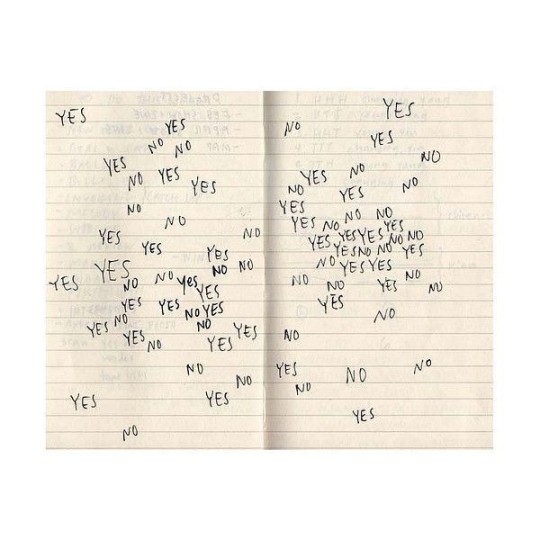 YES
YES
NO
NO
YES
NO
YES
YES
NO
NO
YES
NO
YES
YES
NO
YES
NO
YES
YES
NO
NO
YES
YES
NO
YES
YES
NO
NO
YES
NO
YES
YES
NO
YES
YES
NO
NO
YES
YES
NO
YES
NO
YES
NO
YES
NO
YES
NO
NO
YES
YES
NO
YES
NO
NO
YES
NO
NO
YES
YES
YES
YES
NO
NO
YES
NO
NO
YES
NO
YES
YES
NO
NO
NO
YES
NO
YES
NO
NO
NO
YES
NO
NO
YES